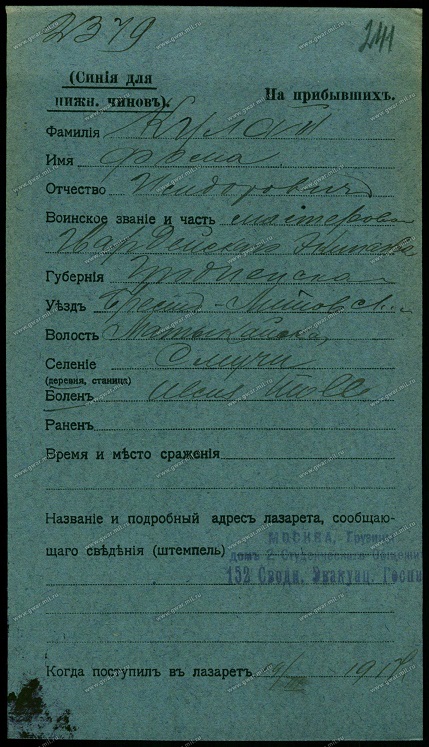 2379
241
(Синія для
нижн. чиновъ).
На прибывшихъ.
Фамилія Кулат
Имя Фома
Отчество Исидорович
Воинское званіе и часть мастеров
Гвардейский
Губернія Гродненская
Уѣздъ Брест-Литовс
Волость
Селеніе
(деревня, станица)
Боленъ
Раненъ
Время и мѣсто сраженія
Названіе и подробный адресъ лазарета, сообщаю-
щаго свѣдѣнія (штемпель)
МОСКВА, Грузины
домъ 2 Студенческаго Общежи
152 Сводн. Эвакуац. Госпи
Когда поступилъ въ лазаретъ 1917
www.gwar.mil.ru